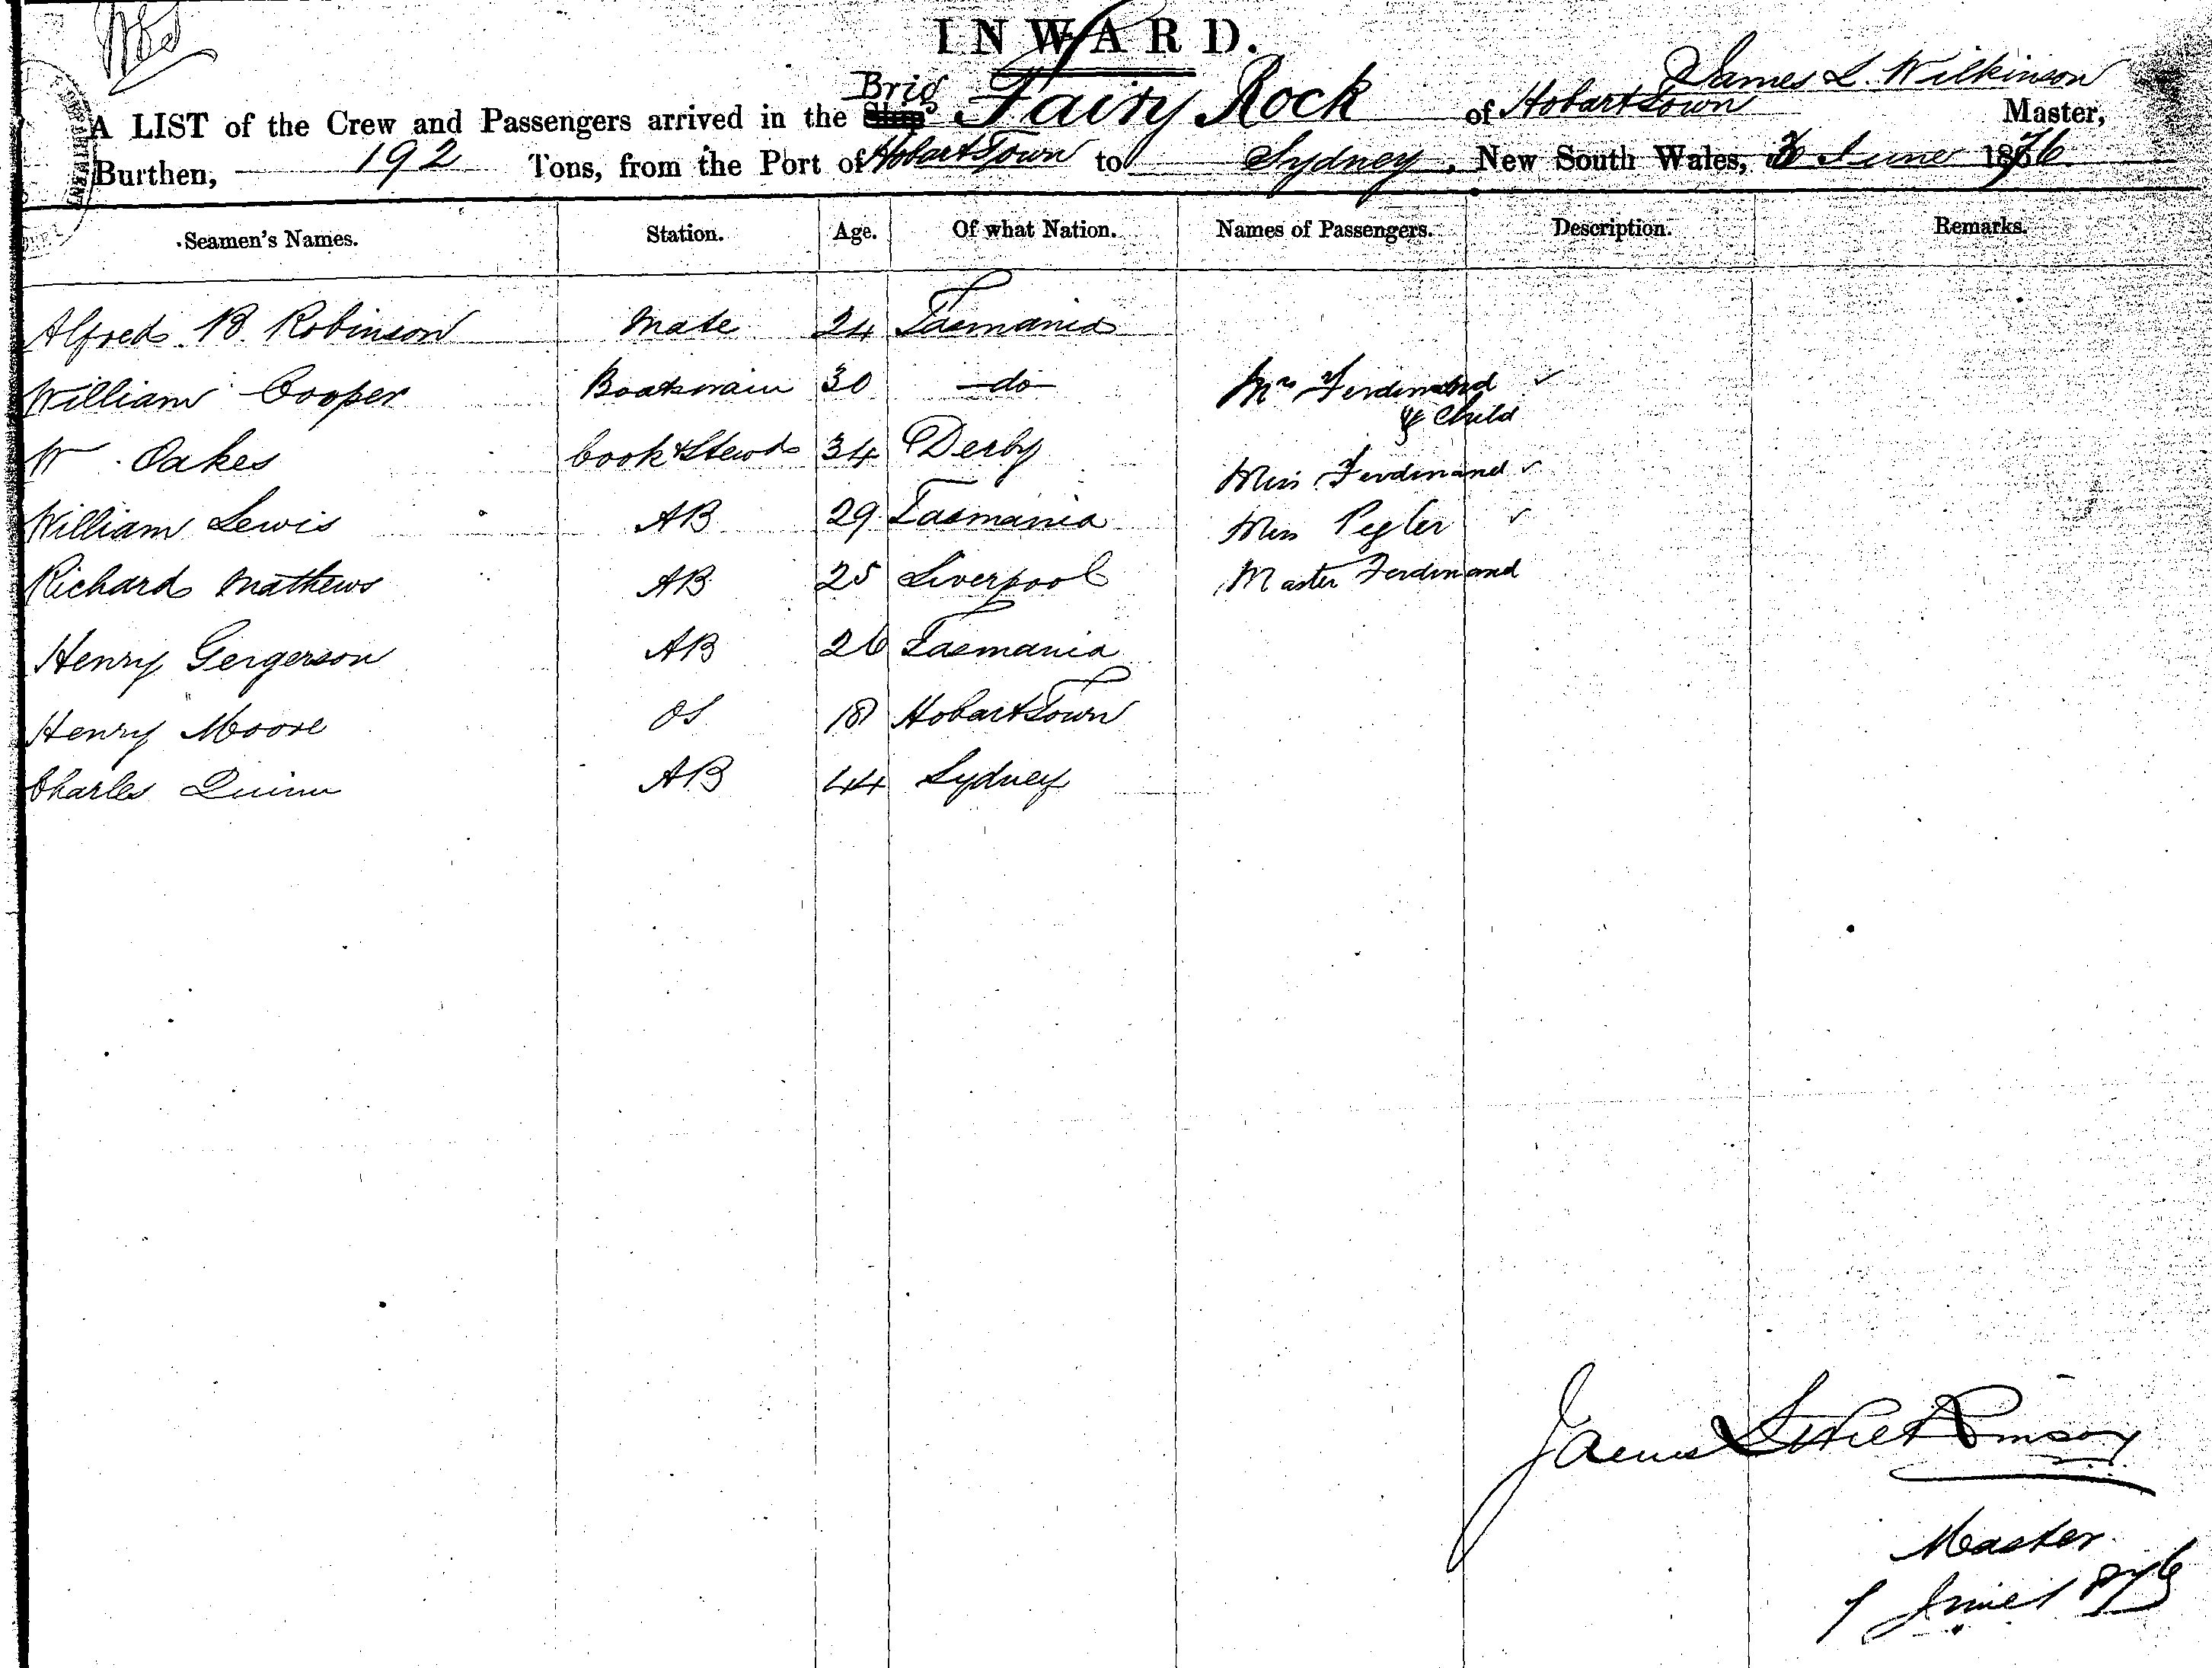 INWARD.
James L. Wilkinson
A LIST of the Crew and Passengers arrived in the Brig Fairy Rock of Hobart Town Master,
Burthen, 192 Tons, from the Port of Hobart Town to Sydney, New South Wales, June 1876
Seamen's Names. Station. Age. Of what Nation. Names of Passengers. Description. Remarks.
Alfred B. Robinson Mate 24 Tasmania
William Cooper Boatswain 30 do Mrs Ferdinand ✓
& Child
W Oakes Cook & Stewd 34 Derby
Miss Ferdinand ✓
William Lewis AB 29 Tasmania Miss Pegler ✓
Richard Mathews AB 25 Liverpool Master Ferdinand
Henry Gergerson AB 26 Tasmania
Henry Moore OS 18 Hobart Town
Charles Quinn AB 44 Sydney
James
Master
June 1876